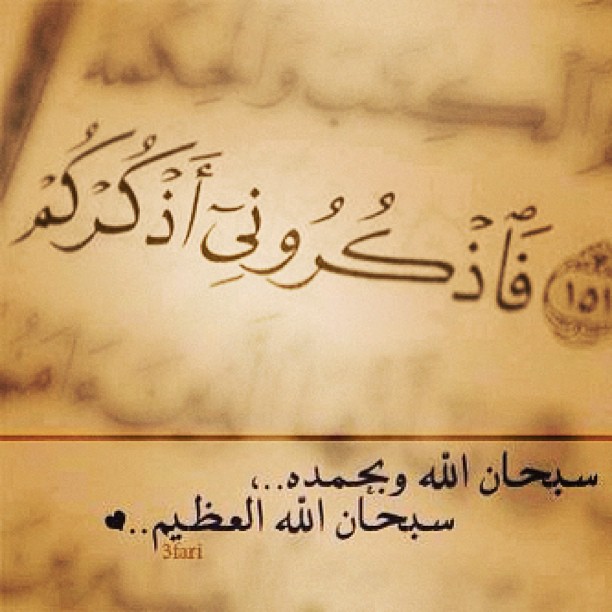 الكتب والحكمة
١٥١ فَٱذْكُرُونِىٓ أَذْكُرْكُمْ
سبحان الله وبحمده..،
سبحان الله العظيم..♥
3fari